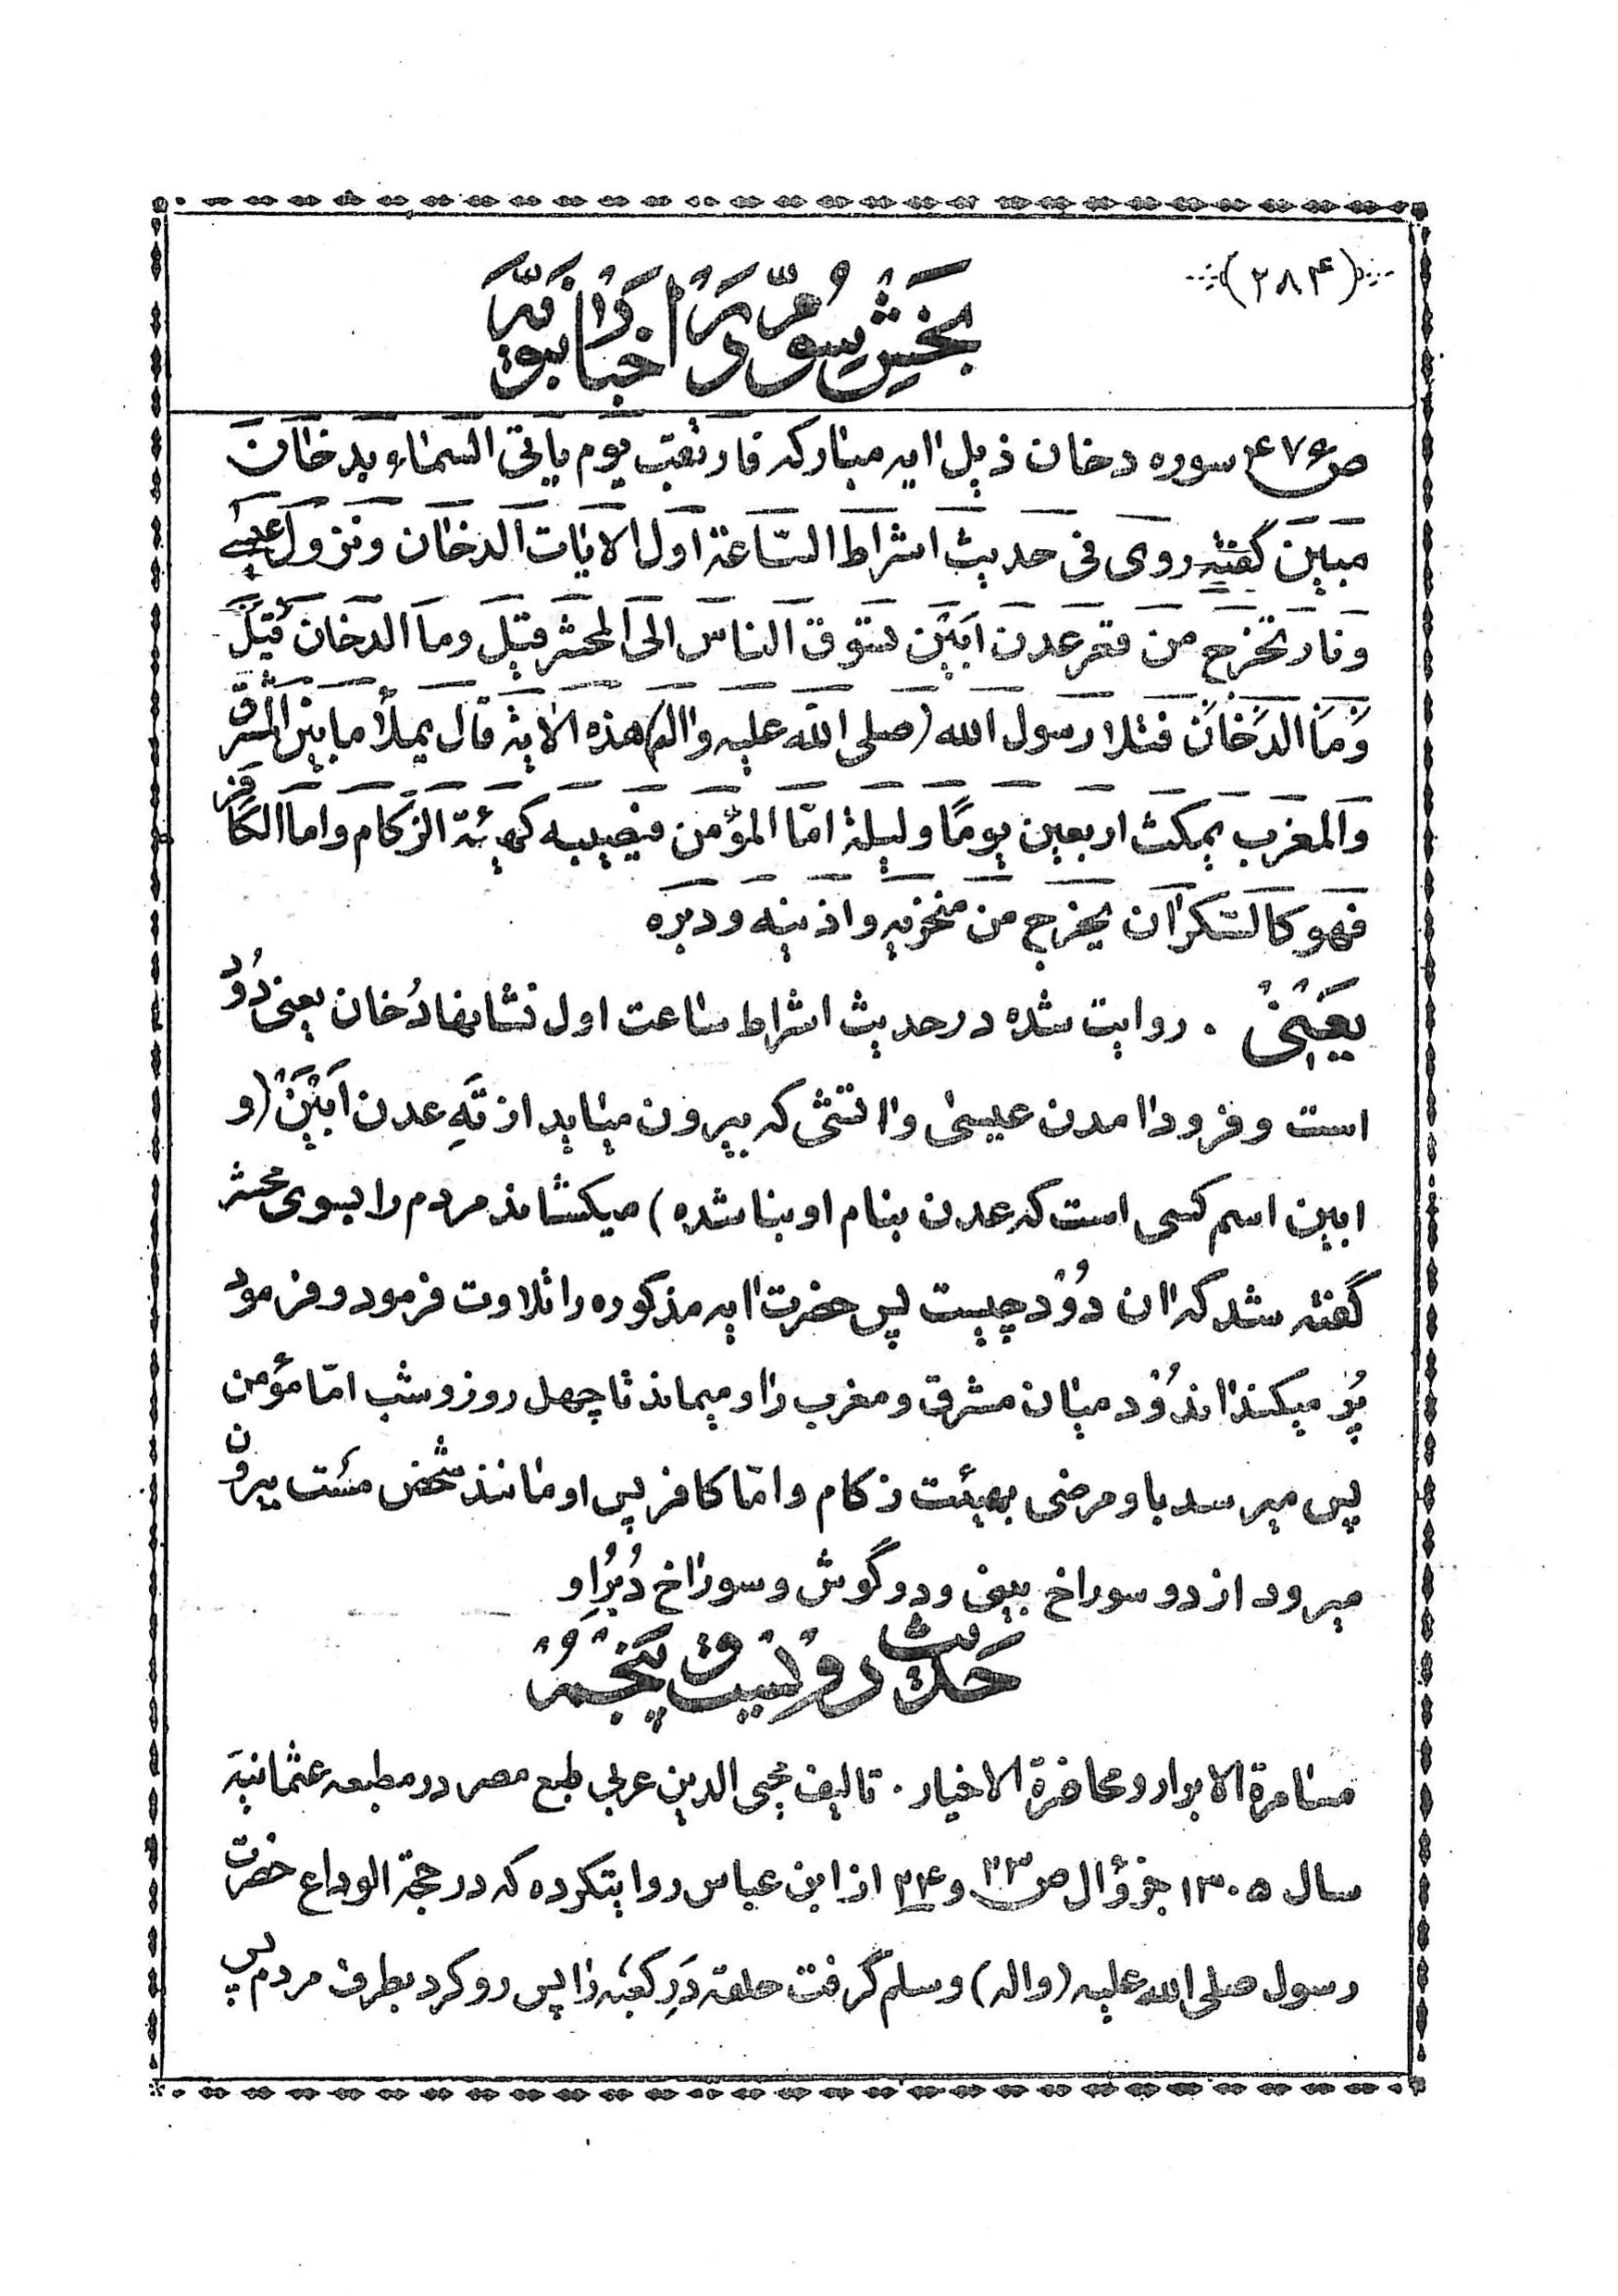 (۲۸۴)
بخش سوّم در اخبار نبویّه
ص۴۷۶ سوره دخان ذیل ایه مبارکه فارتقب یوم یاتی السماء بدخان
مبین گفته روی فی حدیث اشراط الساعة اول الایات الدخان و نزول عیسی
و نار تخرج من قعر عدن ابین تسوق الناس الی المحشر قیل وما الدخان قیل
وما الدخان فتلا رسول الله (صلی الله علیه واله) هذه الایة قال یملأ ما بین المشرق
والمغرب یمکث اربعین یومًا و لیلة امّا المؤمن فیصیبه کهیئة الزکام واما الکافر
فهو کالسکران یخرج من منخریه واذنیه ودبره
یعنی . روایت شده در حدیث اشراط ساعت اول نشانها دُخان یعنی دُود
است و فرود امدن عیسی و اتشی که بیرون میاید از تَهِ عدن اَبْیَنْ (و
ابین اسم کسی است که عدن بنام او بنا شده) میکشاند مردم را بسوی محشر
گفته شد که ان دُود چیست پس حضرت ایه مذکوره را تلاوت فرمود و فرمود
پُر میکند اندُود میان مشرق و مغرب را و میماند تا چهل روز و شب امّا مؤمن
پس میرسد باو مرضی بهیئت زکام و امّا کافر پس او مانند شخص مَست بیرون
میرود از دو سوراخ بینی و دو گوش و سوراخ دُبُرِ او
حدیث دویست و پنجم
مسامرة الابرار و محاضرة الاخیار . تالیف محیی الدین عربی طبع مصر در مطبعه عثمانیّه
سال ۱۳۰۵ جزؤ ال ص۲۳ و ۲۴ از ابن عباس روایتکرده که در حجة الوداع حضرت
رسول صلی الله علیه (واله) وسلم گرفت حلقه دَرِ کعبه را پس رو کرد بطرف مردم پس